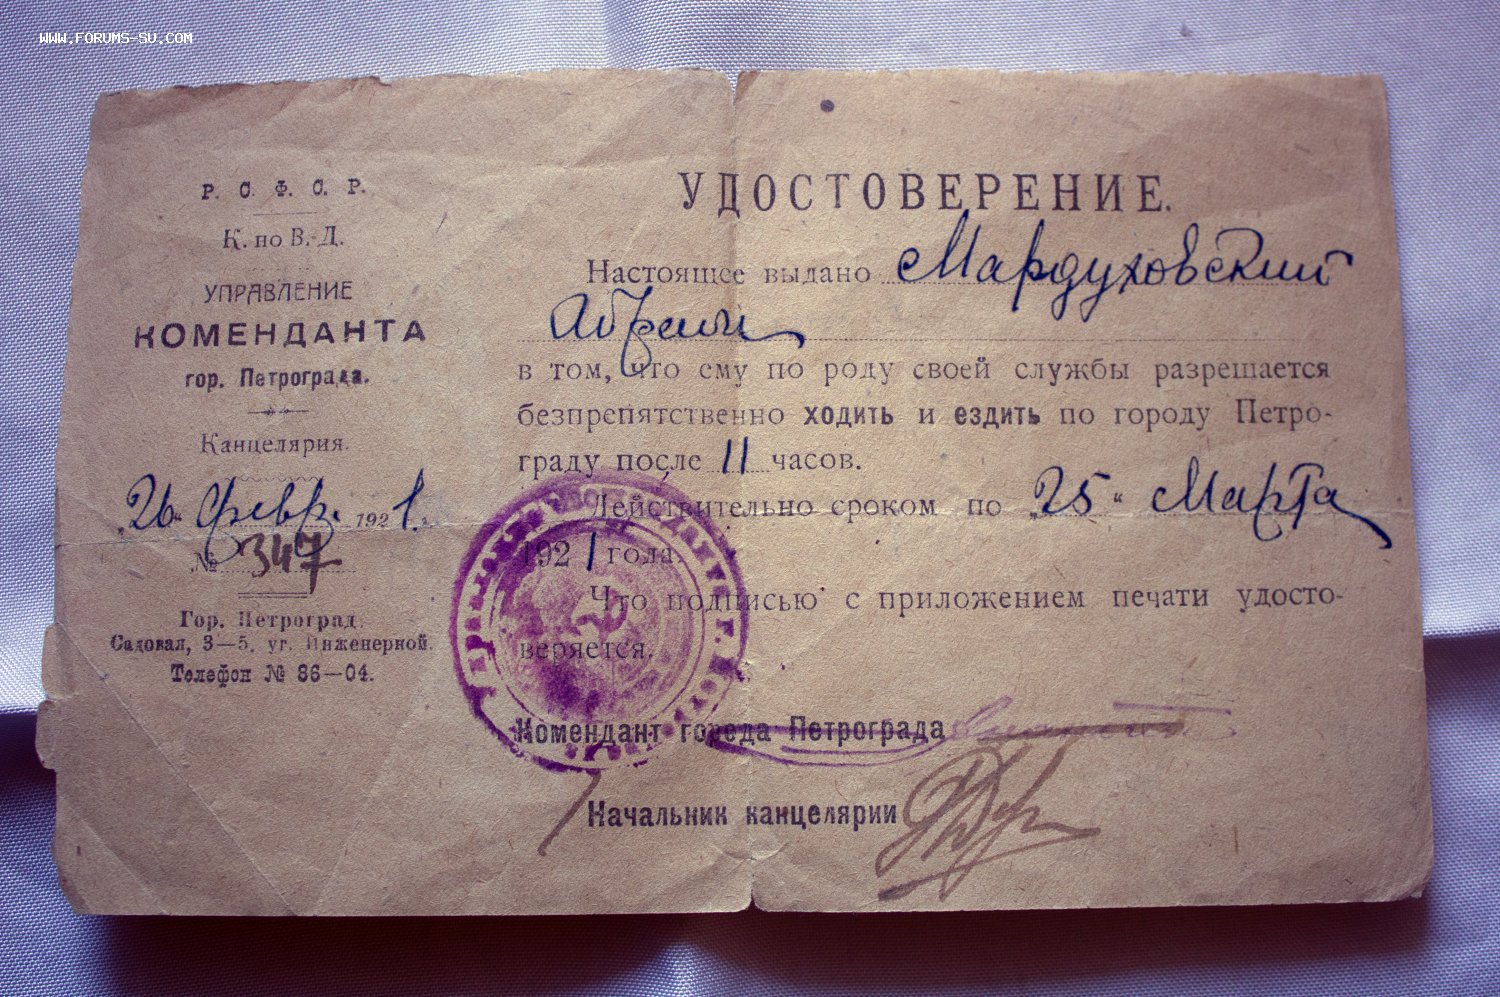 WWW.FORUMS-SU.COM
Р. С. Ф. С. Р.
К. по В. Д.
УПРАВЛЕНИЕ
КОМЕНДАНТА
гор. Петрограда.
Канцелярия.
„26“ февр. 1921 г.
№ 347
Гор. Петроград.
Садовая, 3—5, уг. Инженерной.
Телефон № 86—04.
УДОСТОВЕРЕНИЕ.
Настоящее выдано Мардуховский
Абрам
в том, что ему по роду своей службы разрешается
безпрепятственно ходить и ездить по городу Петро-
граду после 11 часов.
Действительно сроком по „25“ Марта
1921 года.
Что подписью с приложением печати удосто-
веряется.
Комендант города Петрограда
Начальник канцелярии